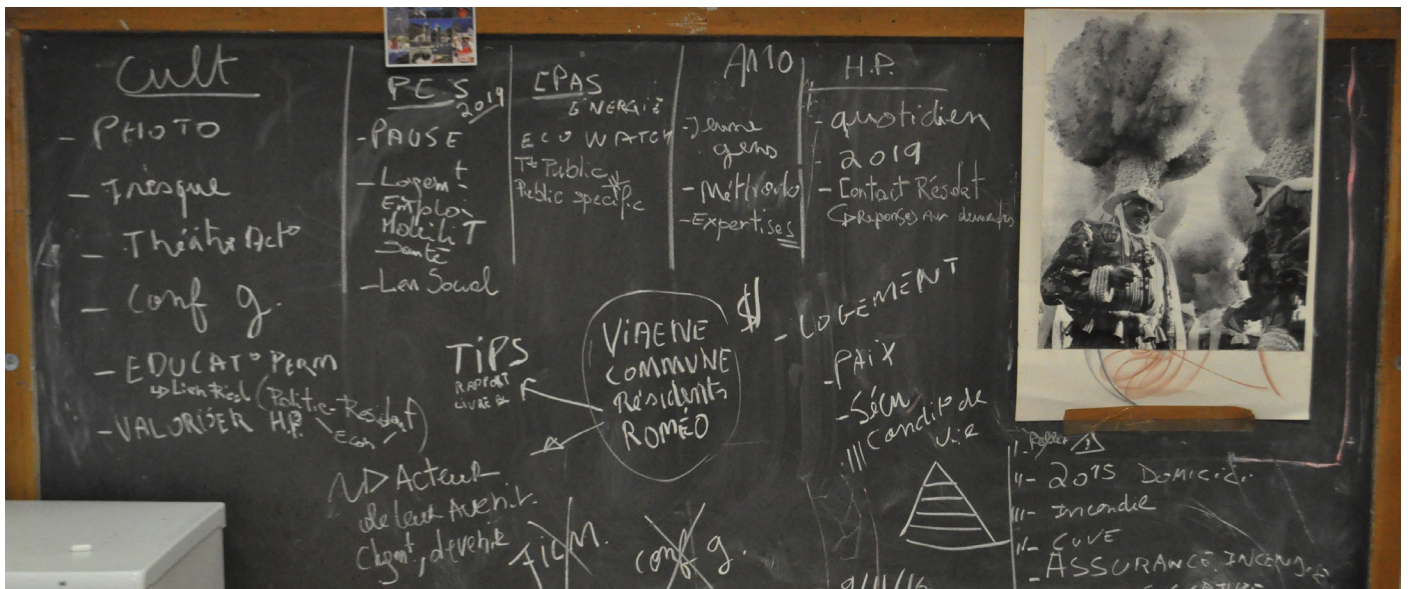 Cult
- PHOTO
- Frésque
- Théâtre Act°
- Conf g.
- EDUCAT° PERM
↳ Lien Réel (Politic-Résident
Econ
- VALORISER H.P.
PCS
2019
- PAUSE
- Logemt
Emploi
MobiliT
Santé
- Lien Social
CPAS
ENERGIE
ECO WATCH
Tt Public
Public specific
AMO
- Jeune
gens
- Méthodo
- Expertises
H.P.
- quotidien
- 2019
- Contact Résdat
↳ Réponses Aux demandes
TiPS
RAPPORT
LIVRE BL
ViAENE
COMMUNE
Résidents
ROMÉO
$
- LOGEMENT
- PAiX
- Sécu
Condit° de
vie
Acteur
de leur Avenir.
Chgmt, devenir
FiLM.
conf g.
9/11/16
I-
!
II- 2015 DOMICI
III- Incendie
IV- CUVE
- ASSURANCE INCENDIE